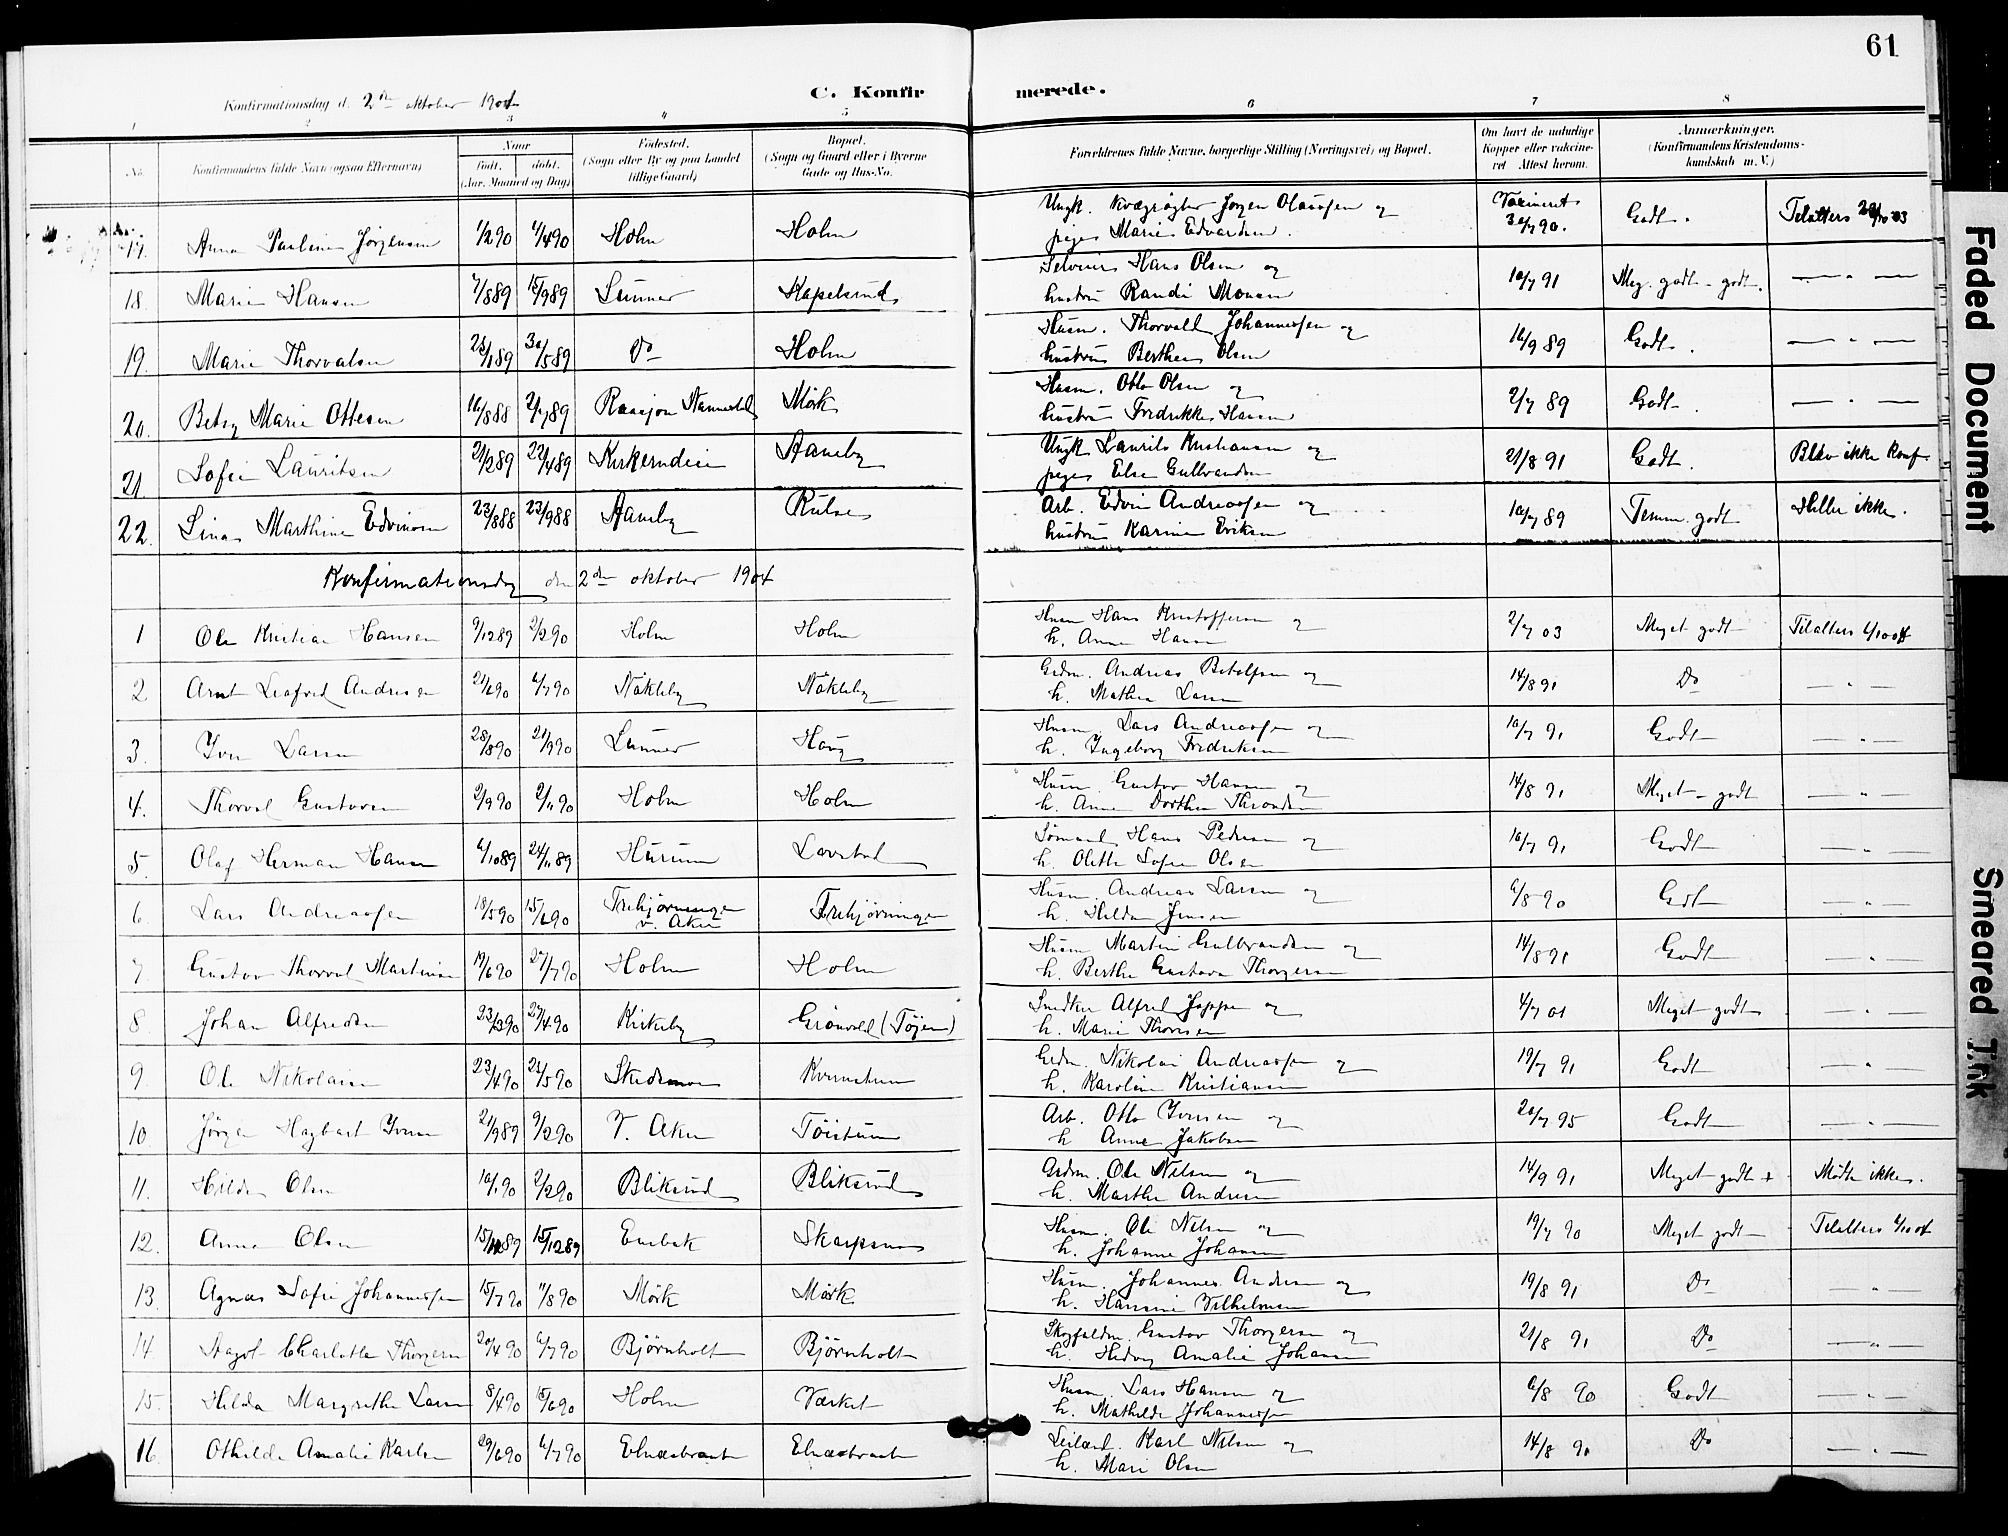 61
C. Konfirmerede.
Konfirmationsdag d. 2den oktober 1904
1 2 3 4 5 6 7 8
No. Konfirmandens fulde Navn (ogsaa Efternavn) Naar født. døbt. (Aar, Maaned og Dag) Fødested. (Sogn eller By og paa Landet tillige Gaard) Bopæl. (Sogn og Gaard eller i Byerne Gade og Hus-No. Forældrenes fulde Navne, borgerlige Stilling (Næringsvei) og Bopæl. Om havt de naturlige Kopper eller vaccineret Attest herom. Anmærkninger. (Konfirmandens Kristendomskundskab m. V.)
17. Anna Pauline Jørgensen 1/2 90 4/4 90 Holm Holm Ungk. Jørgen Olaussen og pige Marie Edvardsen. Vaxineret 90. Godt. Tilatters 03
18. Marie Hansen 7/8 89 15/9 89 Lunner Kapelsrud Selveier Hans Olsen og hustru Randi Monsen 10/7 91 Meg. godt - godt. — " —
19. Marie Thorvalsen 89 30/5 89 Do Holm Husm. Thorvald Johannessen og hustru Berthea Olsen 16/9 89 Godt. — " —
20. Betsy Marie Ottesen 16/8 88 2/7 89 Raasjøen Nannestad Mørk Husm. Otto Olsen og hustru Fredrikke Hansen 2/7 89 Godt. — " —
21 Sofie Lauritsen 21/2 89 22/4 89 Kirkerudeie Aaneby Ungk Laurits Kristiansen og pige Else Gulbrandsen 21/8 91 Godt. Blev ikke konf.
22. Lina Marthine Edvinsen 23/8 88 23/9 88 Aaneby Arb. Edvin Andreassen og hustru Karine Eriksen 10/7 89 Temm. godt Heller ikke.
Konfirmationsdag den 2den oktober 1904
1 Ole Kristian Hansen 9/12 89 2/2 90 Holm Holm Husm Hans Kristoffersen og h. Anne Hansen 2/7 03 Meget godt Tilatters 1/10 04
2 Arnt Leofred Andresen 21/6 90 6/7 90 Nökleby Nökleby Grdm. Andreas Betolfsen og h. Mathea Larsen 14/8 91 Do — " —
3. Iver Larsen 28/8 90 21/9 90 Lunner Haug Husm Lars Andreassen og h. Ingeborg Fredriksen 10/7 91 Godt — " —
4. Thorval Gustavsen 2/9 90 2/11 90 Holm Holm Husm. Gustav Hansen og h. Anne Dorthea Throndsen 14/8 91 Meget - godt — " —
5. Olaf Herman Hansen 6/10 89 24/11 89 Hurum Lovstad Sømand Hans Pedersen og h. Olette Sofie Olsen 10/7 91 Godt — " —
6. Lars Andreassen 18/5 90 15/6 90 Trehjørningen v. Aker Trehjørningen Husm. Andreas Larsen og h. Hilda Jensen 6/8 90 Godt — " —
7. Gustav Thorval Martinsen 19/6 90 27/7 90 Holm Holm Husm Martin Gulbrandsen og h. Berthe Gustava Thorgersen 14/8 91 Godt — " —
8 Johan Alfredsen 23/3 90 27/4 90 Kirkeby Grønvold (Tøjen) Snedker Alfred Jeppe og h. Marie Thoresen 4/7 01 Meget godt — " —
9. Ole Nikolaisen 23/4 90 24/5 90 Skedsmo Kvernstuen Grdm. Nikolai Andreassen og h. Karoline Kristiansen 19/7 91 Godt — " —
10. Jørgen Hagbart Iversen 21/9 89 9/2 90 V. Aker Töistuen Arb. Otto Iversen og h Anne Jakobsen 20/7 95 Godt — " —
11. Hilda Olsen 10/1 90 2/2 90 Bliksrud Bliksrud Grdm. Ole Nilsen og h. Marthe Andresen 14/9 91 Meget godt + Mødte ikke.
12. Anna Olsen 15/11 89 15/12 89 Enebak Skarpsno Husm. Ole Nilsen og h. Johanne Johansen 19/7 90 Meget godt Tilatters 1/10 04
13. Agnes Sofie Johannessen 15/7 90 17/8 90 Mörk Mörk Husm. Johannes Andersen og h. Hansine Vilhelmsen 19/8 91 Do — " —
14. Aagot Charlotte Thorgersen 20/4 90 6/7 90 Bjørnholt Bjørnholt Skogfuldm. Gustav Thorgersen og h. Hedvig Amalie Johansen 21/8 91 Do — " —
15. Hilda Margrethe Larsen 8/4 90 15/6 90 Holm Værket Husm. Lars Hansen og h. Mathilde Johannessen 6/8 90 Godt — " —
16. Othilde Amalie Karlsen 29/6 90 6/7 90 Elnæsbraaten Elnæsbraaten Leilænd. Karl Nilsen og h. Mari Olsen 14/8 90 Do — " —
Faded Document
Smeared Ink